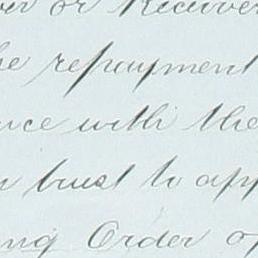 or Receiver
he repayment
nce with the
n trust to app
ing Order of